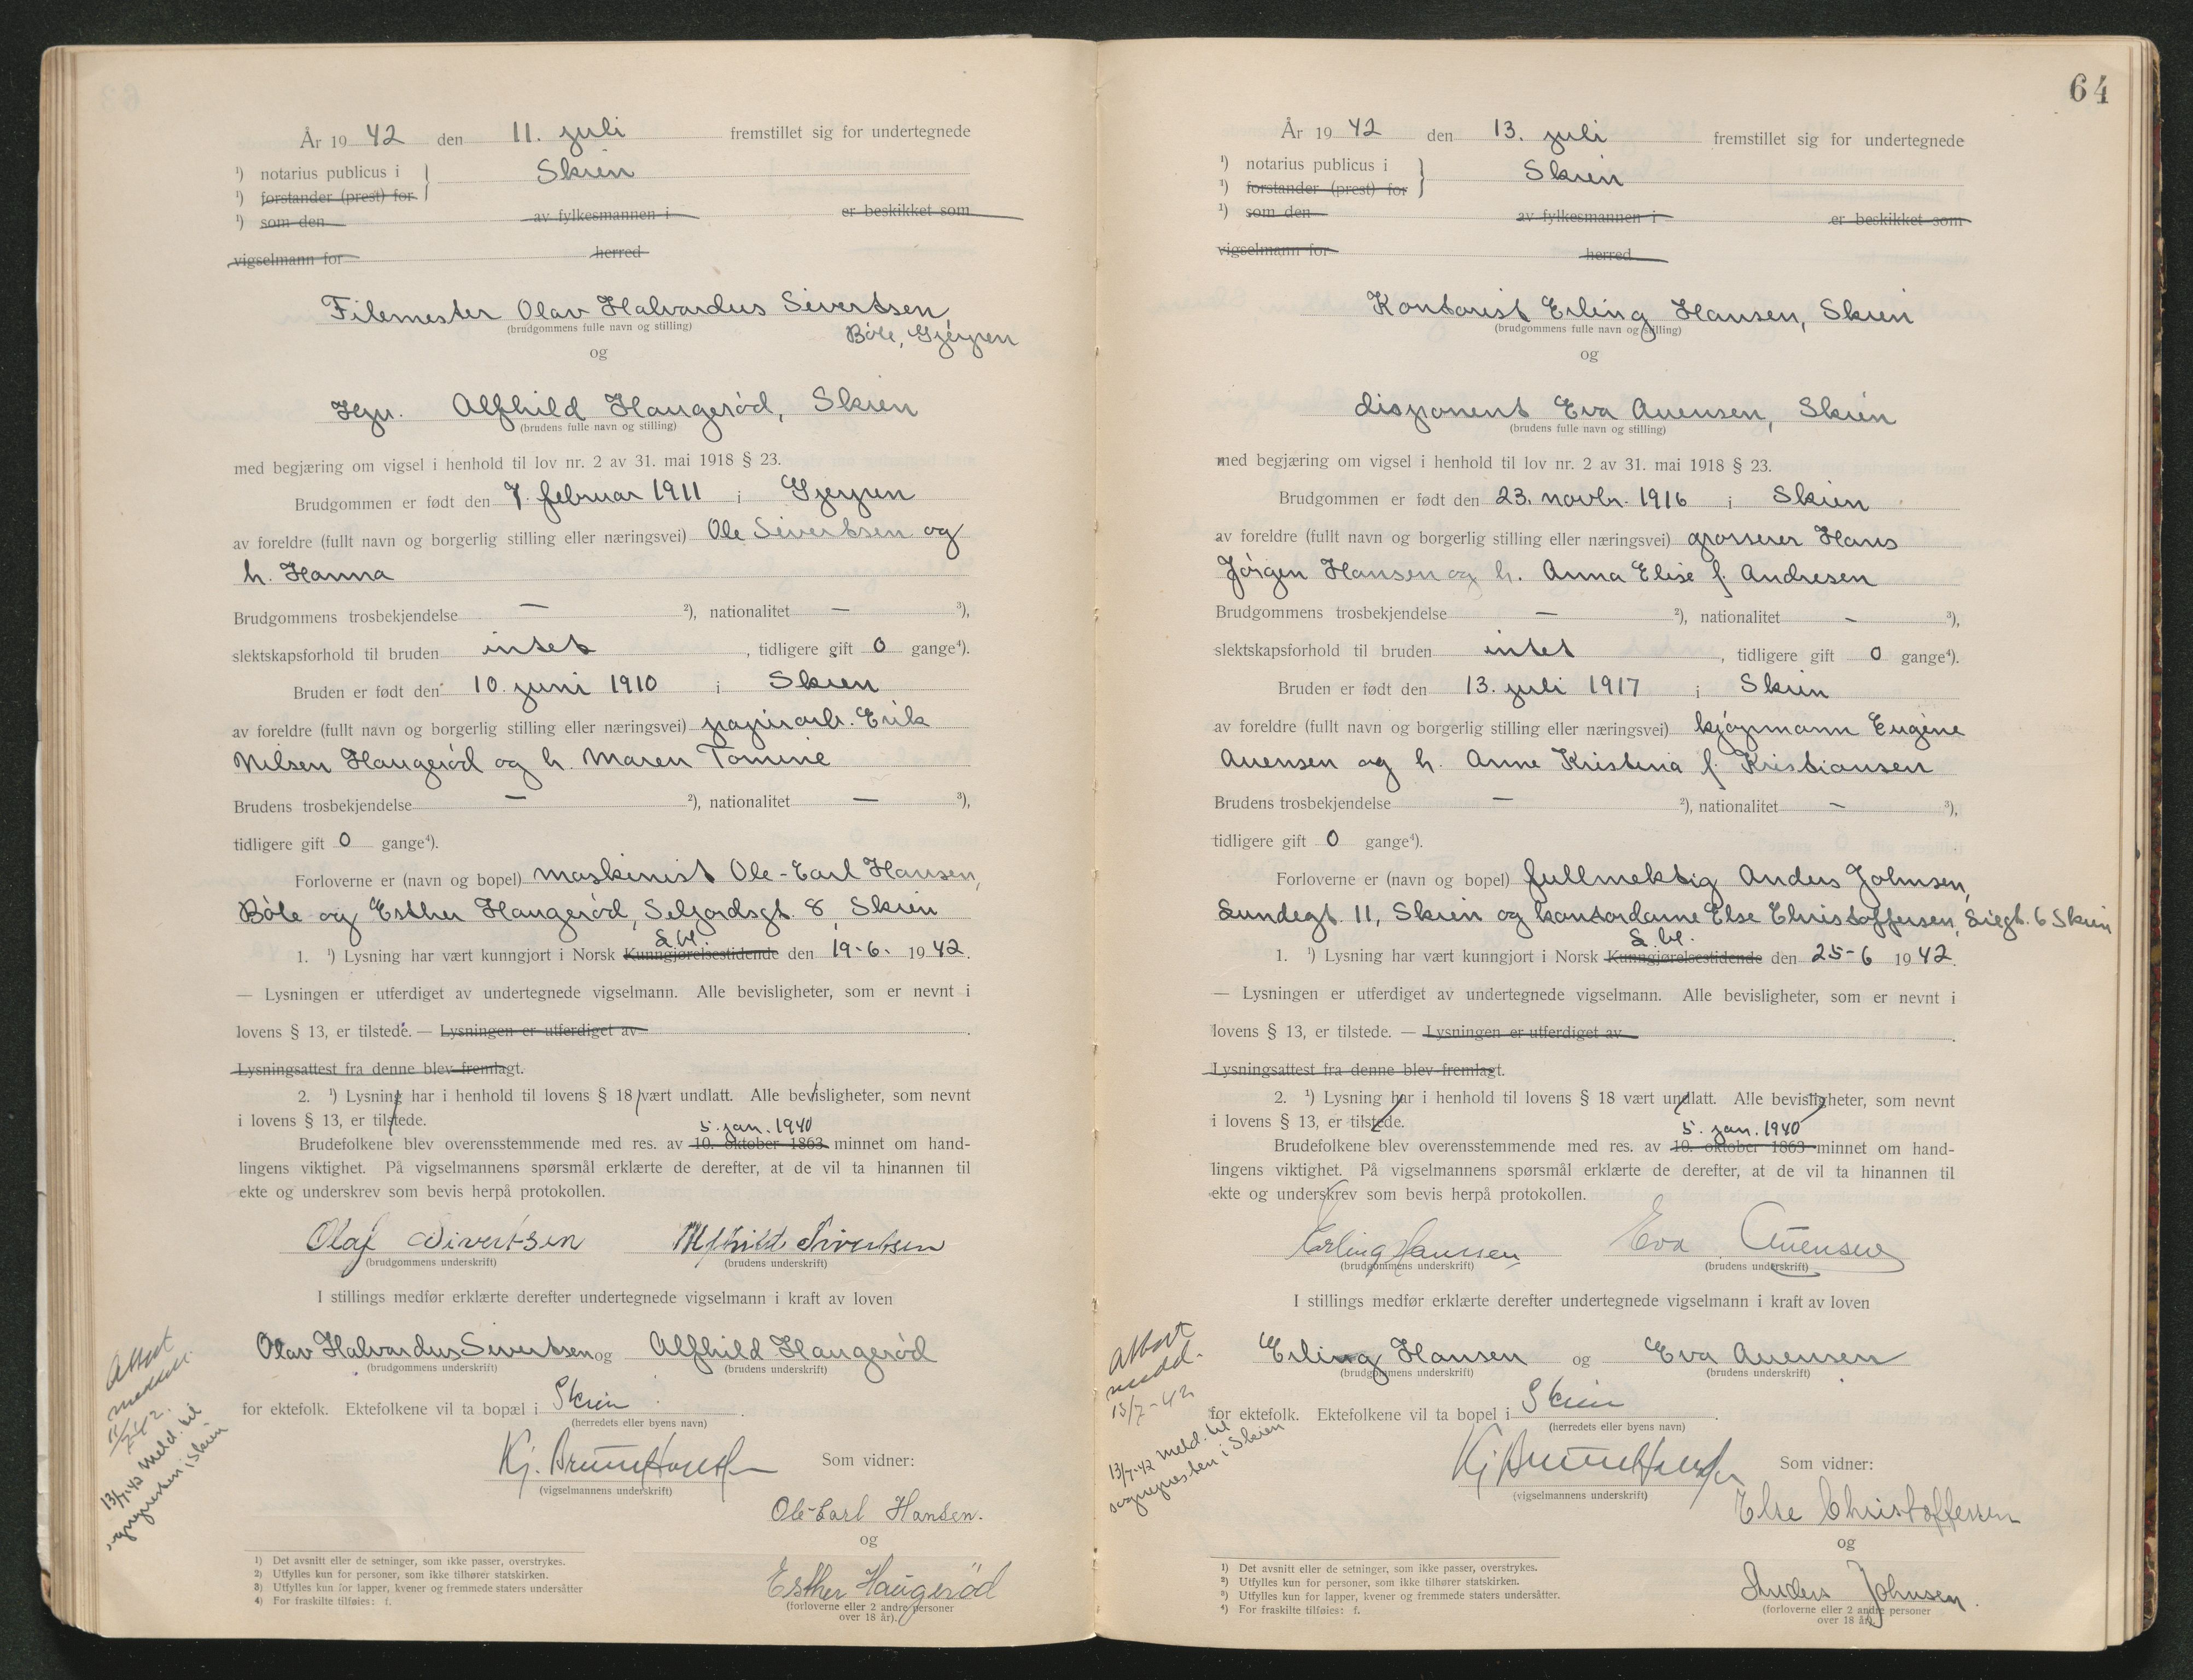 År 19 42 den 11. juli fremstillet sig for undertegnede
¹) notarius publicus i Skien
¹) forstander (prest) for
¹) som den av fylkesmannen i er beskikket som
vigselmann for herred
Filemester Olav Halvardus Sivertsen,
(brudgommens fulle navn og stilling)
Bøle, Gjerpen
og
Hgn. Alfhild Haugerød, Skien
(brudens fulle navn og stilling)
med begjæring om vigsel i henhold til lov nr. 2 av 31. mai 1918 § 23.
Brudgommen er født den 7. februar 1911 i Gjerpen
av foreldre (fullt navn og borgerlig stilling eller næringsvei) Ole Sivertsen og
h. Hanna
Brudgommens trosbekjendelse — ²), nationalitet — ³),
slektskapsforhold til bruden intet, tidligere gift 0 gange⁴).
Bruden er født den 10. juni 1910 i Skien
av foreldre (fullt navn og borgerlig stilling eller næringsvei) papirarb. Erik
Nilsen Haugerød og h. Maren Tomine
Brudens trosbekjendelse — ²), nationalitet — ³),
tidligere gift 0 gange⁴).
Forloverne er (navn og bopel) maskinist Ole-Carl Hansen,
Bøle og Esther Haugerød, Seljordsgt. 8, Skien
S. bl.
1. ¹) Lysning har vært kunngjort i Norsk Kunngjørelsestidende den 19-6- 19 42.
— Lysningen er utferdiget av undertegnede vigselmann. Alle bevisligheter, som er nevnt i
lovens § 13, er tilstede. — Lysningen er utferdiget av
Lysningsattest fra denne blev fremlagt.
2. ¹) Lysning har i henhold til lovens § 18 vært undlatt. Alle bevisligheter, som nevnt
i lovens § 13, er tilstede.
5. jan. 1940
Brudefolkene blev overensstemmende med res. av 10. oktober 1863 minnet om hand-
lingens viktighet. På vigselmannens spørsmål erklærte de derefter, at de vil ta hinannen til
ekte og underskrev som bevis herpå protokollen.
Olaf Sivertsen Alfhild Sivertsen
(brudgommens underskrift) (brudens underskrift)
I stillings medfør erklærte derefter undertegnede vigselmann i kraft av loven
Olav Halvardus Sivertsen og Alfhild Haugerød
(brudgommens underskrift) (brudens underskrift)
for ektefolk. Ektefolkene vil ta bopæl i Skien.
(herredets eller byens navn)
Som vidner:
(vigselmannens underskrift)
Ole-Carl Hansen.
og
Esther Haugerød
(forloverne eller 2 andre personer
over 18 år).
Attest
meddelt
11/7-42.
13/7-42 meld. til
sognepresten i Skien
1) Det avsnitt eller de setninger, som ikke passer, overstrykes.
2) Utfylles kun for personer, som ikke tilhører statskirken.
3) Utfylles kun for lapper, kvener og fremmede staters undersåtter
4) For fraskilte tilføies: f.
64
År 19 42 den 13. juli fremstillet sig for undertegnede
¹) notarius publicus i Skien
¹) forstander (prest) for
¹) som den av fylkesmannen i er beskikket som
vigselmann for herred
Kontorist Erling Hansen, Skien
(brudgommens fulle navn og stilling)
og
disponent Eva Auensen, Skien
(brudens fulle navn og stilling)
med begjæring om vigsel i henhold til lov nr. 2 av 31. mai 1918 § 23.
Brudgommen er født den 23. novbr. 1916 i Skien
av foreldre (fullt navn og borgerlig stilling eller næringsvei) grosserer Hans
Jørgen Hansen og h. Anna Elise f. Andresen
Brudgommens trosbekjendelse — ²), nationalitet — ³),
slektskapsforhold til bruden intet, tidligere gift 0 gange⁴).
Bruden er født den 13. juli 1917 i Skien
av foreldre (fullt navn og borgerlig stilling eller næringsvei) kjøpmann Eugène
Auensen og h. Anne Kristina f. Kristiansen
Brudens trosbekjendelse — ²), nationalitet — ³),
tidligere gift 0 gange⁴).
Forloverne er (navn og bopel) fullmektig Anders Johnsen,
Lundegt. 11, Skien og kontordame Else Christoffersen, 6 Skien
S. bl.
1. ¹) Lysning har vært kunngjort i Norsk Kunngjørelsestidende den 25-6 19 42.
— Lysningen er utferdiget av undertegnede vigselmann. Alle bevisligheter, som er nevnt i
lovens § 13, er tilstede. — Lysningen er utferdiget av
Lysningsattest fra denne blev fremlagt.
2. ¹) Lysning har i henhold til lovens § 18 vært undlatt. Alle bevisligheter, som nevnt
i lovens § 13, er tilstede.
5. jan. 1940
Brudefolkene blev overensstemmende med res. av 10. oktober 1863 minnet om hand-
lingens viktighet. På vigselmannens spørsmål erklærte de derefter, at de vil ta hinannen til
ekte og underskrev som bevis herpå protokollen.
Erling Hanssen Eva Auensen
(brudgommens underskrift) (brudens underskrift)
I stillings medfør erklærte derefter undertegnede vigselmann i kraft av loven
Erling Hansen og Eva Auensen
(brudgommens underskrift) (brudens underskrift)
for ektefolk. Ektefolkene vil ta bopel i Skien.
(herredets eller byens navn)
Som vidner:
(vigselmannens underskrift)
Else Christoffersen
og
Anders Johnsen.
(forloverne eller 2 andre personer
over 18 år).
Attest
medd.
13/7-42
13/7-42 meld. til
sognepresten i Skien
1) Det avsnitt eller de setninger, som ikke passer, overstrykes.
2) Utfylles kun for personer, som ikke tilhører statskirken.
3) Utfylles kun for lapper, kvener og fremmede staters undersåtter.
4) For fraskilte tilføies: f.